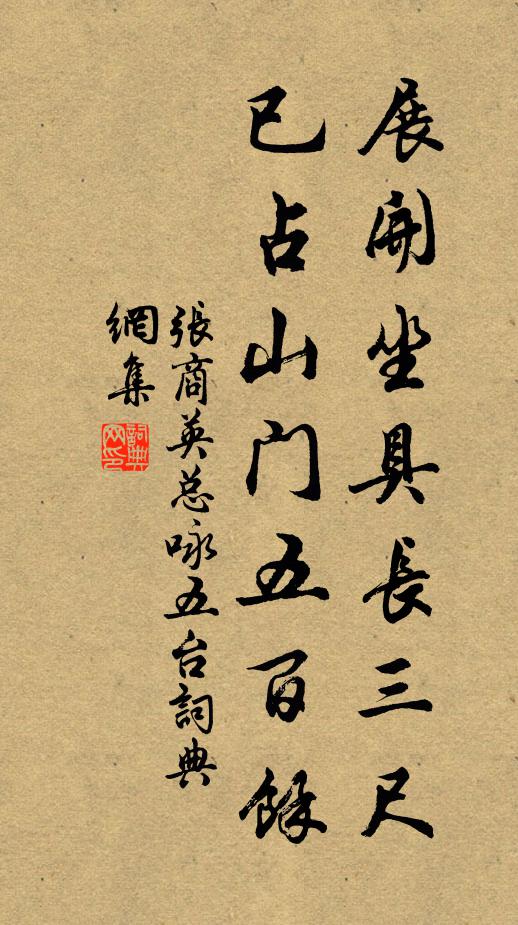 展開坐具長三尺
已占山門五百餘
張商英总咏五台詞典
網集
詞典網印